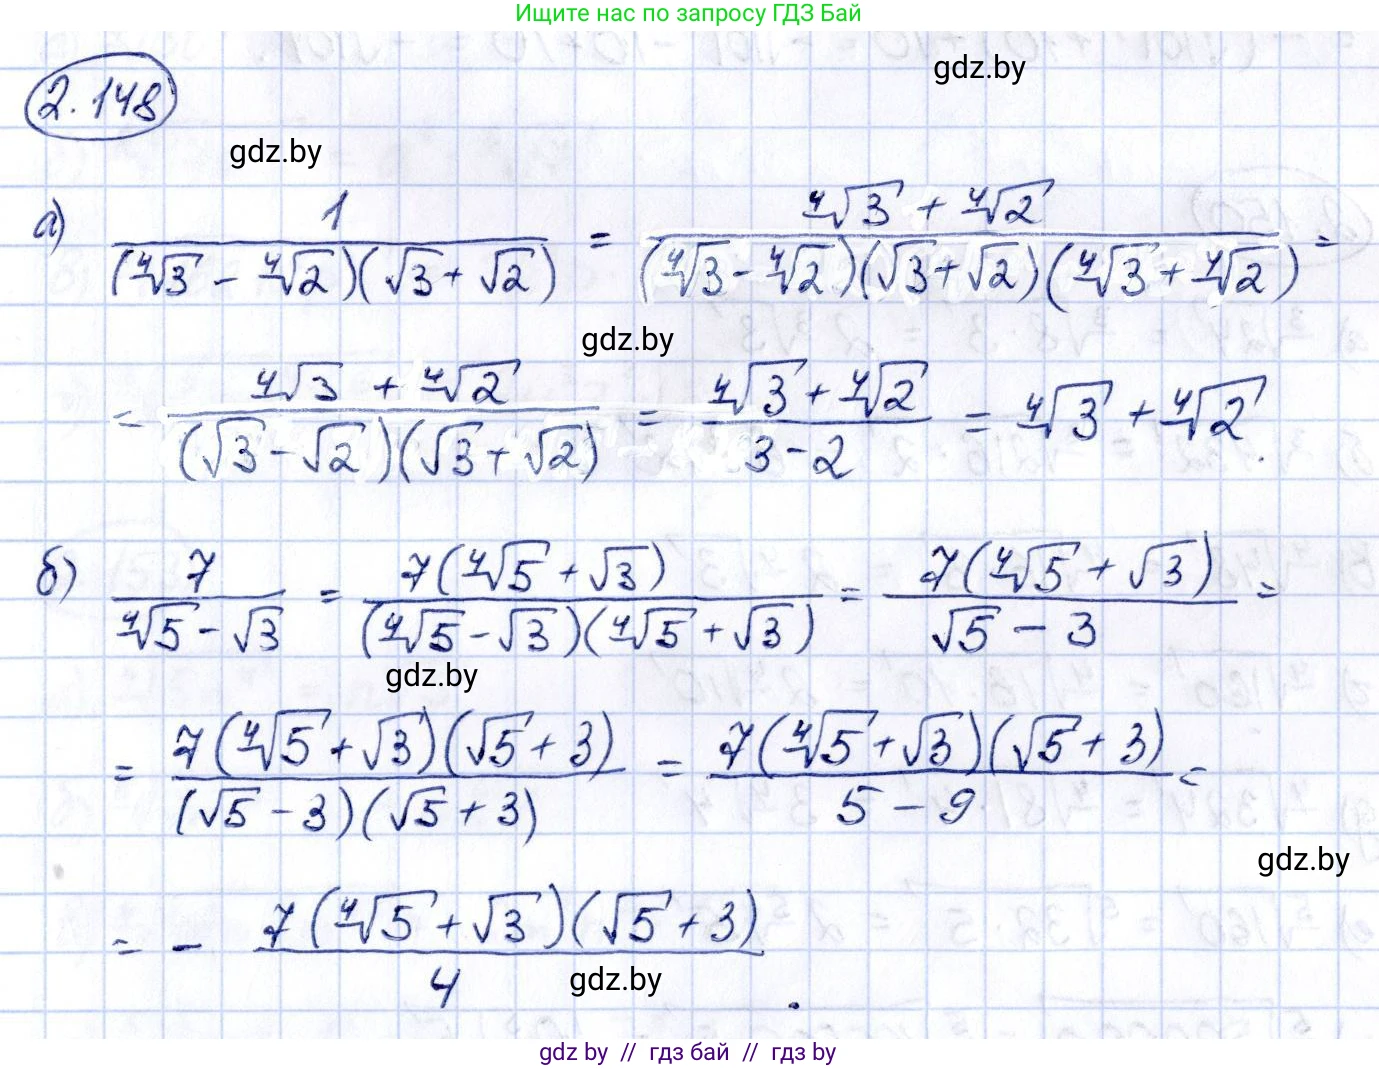 Ищите нас по запросу ГДЗ Бай
gdz.by
2.148
gdz.by
а) 1/((⁴√3 - ⁴√2)(√3 + √2)) = (⁴√3 + ⁴√2)/((⁴√3 - ⁴√2)(√3 + √2)(⁴√3 + ⁴√2)) =
gdz.by
= (⁴√3 + ⁴√2)/((√3 - √2)(√3 + √2)) = (⁴√3 + ⁴√2)/(3 - 2) = ⁴√3 + ⁴√2.
б) 7/(⁴√5 - √3) = 7(⁴√5 + √3)/((⁴√5 - √3)(⁴√5 + √3)) = 7(⁴√5 + √3)/(√5 - 3) =
gdz.by
= 7(⁴√5 + √3)(√5 + 3)/((√5 - 3)(√5 + 3)) = 7(⁴√5 + √3)(√5 + 3)/(5 - 9) =
gdz.by
= - 7(⁴√5 + √3)(√5 + 3)/4.
gdz.by
gdz by // гдз бай // гдз by